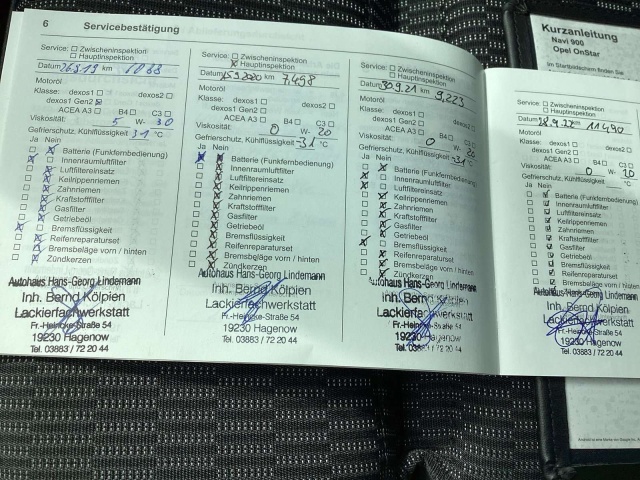 6 Servicebestätigung
Service: Zwischeninspektion
Hauptinspektion
Datum km 1088
Motoröl
Klasse: dexos1 dexos2
dexos1 Gen2
ACEA A3 B4 C3
Viskosität: 5 W- 30
Gefrierschutz, Kühlflüssigkeit -31 °C
Ja Nein
Batterie (Funkfernbedienung)
Innenraumluftfilter
Luftfiltereinsatz
Keilrippenriemen
Zahnriemen
Kraftstofffilter
Gasfilter
Getriebeöl
Bremsflüssigkeit
Reifenreparaturset
Bremsbeläge vorn / hinten
Zündkerzen
Autohaus Hans-Georg Lindemann
Inh. Bernd Kölpien
Lackierfachwerkstatt
Fr.-Heincke-Straße 54
19230 Hagenow
Tel. 03883 / 72 20 44
Service: Zwischeninspektion
Hauptinspektion
Datum 15.9.2020 km 7,498
Motoröl
Klasse: dexos1 dexos2
dexos1 Gen2
ACEA A3 B4 C3
Viskosität: 0 W- 20
Gefrierschutz, Kühlflüssigkeit -31 °C
Ja Nein
Batterie (Funkfernbedienung)
Innenraumluftfilter
Luftfiltereinsatz
Keilrippenriemen
Zahnriemen
Kraftstofffilter
Gasfilter
Getriebeöl
Bremsflüssigkeit
Reifenreparaturset
Bremsbeläge vorn / hinten
Zündkerzen
Autohaus Hans-Georg Lindemann
Inh. Bernd Kölpien
Lackierfachwerkstatt
Fr.-Heincke-Straße 54
19230 Hagenow
Tel. 03883 / 72 20 44
Service: Zwischeninspektion
Hauptinspektion
Datum 30.9.21 km 9,223
Motoröl
Klasse: dexos1 dexos2
dexos1 Gen2
ACEA A3 B4 C3
Viskosität: 0 W- 20
Gefrierschutz, Kühlflüssigkeit -31 °C
Ja Nein
Batterie (Funkfernbedienung)
Innenraumluftfilter
Luftfiltereinsatz
Keilrippenriemen
Zahnriemen
Kraftstofffilter
Gasfilter
Getriebeöl
Bremsflüssigkeit
Reifenreparaturset
Bremsbeläge vorn / hinten
Zündkerzen
Autohaus Hans-Georg Lindemann
Inh. Bernd Kölpien
Lackierfachwerkstatt
Fr.-Heincke-Straße 54
19230 Hagenow
Tel. 03883 / 72 20 44
Service: Zwischeninspektion
Hauptinspektion
Datum 28.9.22 km 11490
Motoröl
Klasse: dexos1 dexos2
dexos1 Gen2
ACEA A3 B4 C3
Viskosität: 0 W- 20
Gefrierschutz, Kühlflüssigkeit °C
Ja Nein
Batterie (Funkfernbedienung)
Innenraumluftfilter
Luftfiltereinsatz
Keilrippenriemen
Zahnriemen
Kraftstofffilter
Gasfilter
Getriebeöl
Bremsflüssigkeit
Reifenreparaturset
Bremsbeläge vorn / hinten
Autohaus Hans-Georg Lindemann
Inh. Bernd Kölpien
Lackierfachwerkstatt
Fr.-Heincke-Straße 54
19230 Hagenow
Tel. 03883 / 72 20 44
Kurzanleitung
Navi 900
Opel OnStar